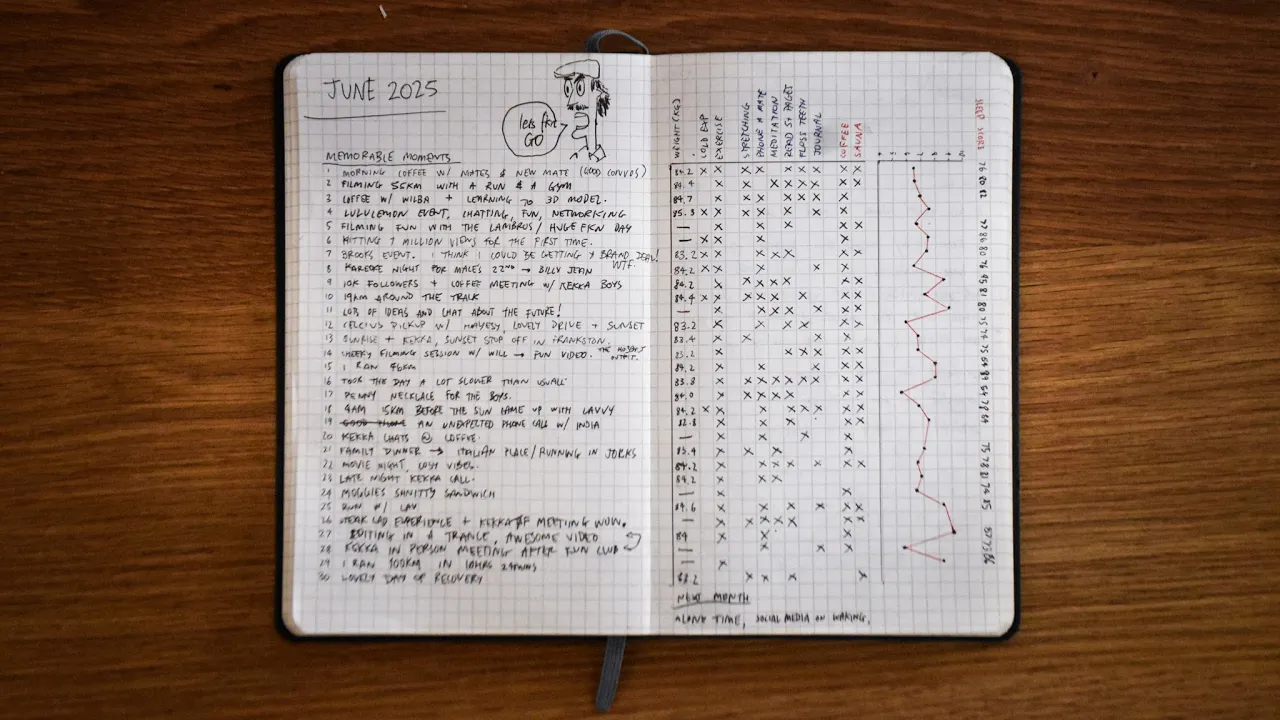 JUNE 2025
LETS FKN
GO
MEMORABLE MOMENTS
1 MORNING COFFEE W/ MATES & NEW MATE (GOOD CONVOS)
2 FILMING 55KM WITH A RUN & A GYM
3 COFFEE W/ WILBA + LEARNING TO 3D MODEL.
4 LULULEMON EVENT, CHATTING, FUN, NETWORKING
5 FILMING FUN WITH THE LAMBROS/ HUGE FKN DAY
6 HITTING 7 MILLION VIEWS FOR THE FIRST TIME.
7 BROOKS EVENT. I THINK I COULD BE GETTING A BRAND DEAL!
WTF.
8 KAREOKE NIGHT FOR MALE'S 22ND → BILLY JEAN
9 10K FOLLOWERS + COFFEE MEETING W/ KEKKA BOYS
10 19KM AROUND THE TRACK
11 LOTS OF IDEAS AND CHAT ABOUT THE FUTURE!
12 CELCIUS PICKUP W/ LOVELY DRIVE + SUNSET
13 SUNRISE + KEKKA, SUNSET STOP OFF IN FRANKSTON.
14 CHEEKY FILMING SESSION W/ WILL → FUN VIDEO.
15 I RAN 46KM
16 TOOK THE DAY A LOT SLOWER THAN USUAL
17 PENNY NECKLACE FOR THE BOYS.
18 4AM 15KM BEFORE THE SUN CAME UP WITH LAVVY
19 AN UNEXPECTED PHONE CALL W/ INDIA
20 KEKKA CHATS @ COFFEE.
21 FAMILY DINNER → ITALIAN PLACE/RUNNING IN JORTS
22 MOVIE NIGHT, COSY VIBES.
23 LATE NIGHT KEKKA CALL.
24 MOGGIES SHNITTY SANDWICH
25 RUN W/ LAV
26 EXPERIENCE + KEKKA MEETING WOW.
27 EDITING IN A TRANCE, AWESOME VIDEO
28 KEKKA IN PERSON MEETING AFTER RUN CLUB
29 I RAN 100KM IN 10HRS
30 LOVELY DAY OF RECOVERY
WEIGHT (KG)
COLD EXP
EXERCISE
STRETCHING
PHONE A MATE
MEDITATION
READ 5+ PAGES
FLOSS TEETH
JOURNAL
COFFEE
SAUNA
SLEEP SCORE
84.2 X X X X X X X X X X
84.4 X X X X X X X X
84.7 X X X X X X X
85.3 X X X X X X X
— X X X X X
— X X X X
83.2 X X X X X X X
84.2 X X X X X
84.2 X X X X X X X
84.4 X X X X X X X
— X X X X X
83.2 X X X X X X
83.4 X X X X
83.2 X X X X X X
84.2 X X X X
83.8 X X X X X X X X X
84.0 X X X X X X X
84.2 X X X X X X X X
82.8 X X X X
— X X X X
83.4 X X X
84.2 X X X X X X X
84.2 X X X
— X X
84.6 X X X X X X
— X X X X X X X
84 X X X
— X X X X
X
83.2 X X X X
NEXT MONTH
ALONE TIME, SOCIAL MEDIA ON WAKING.